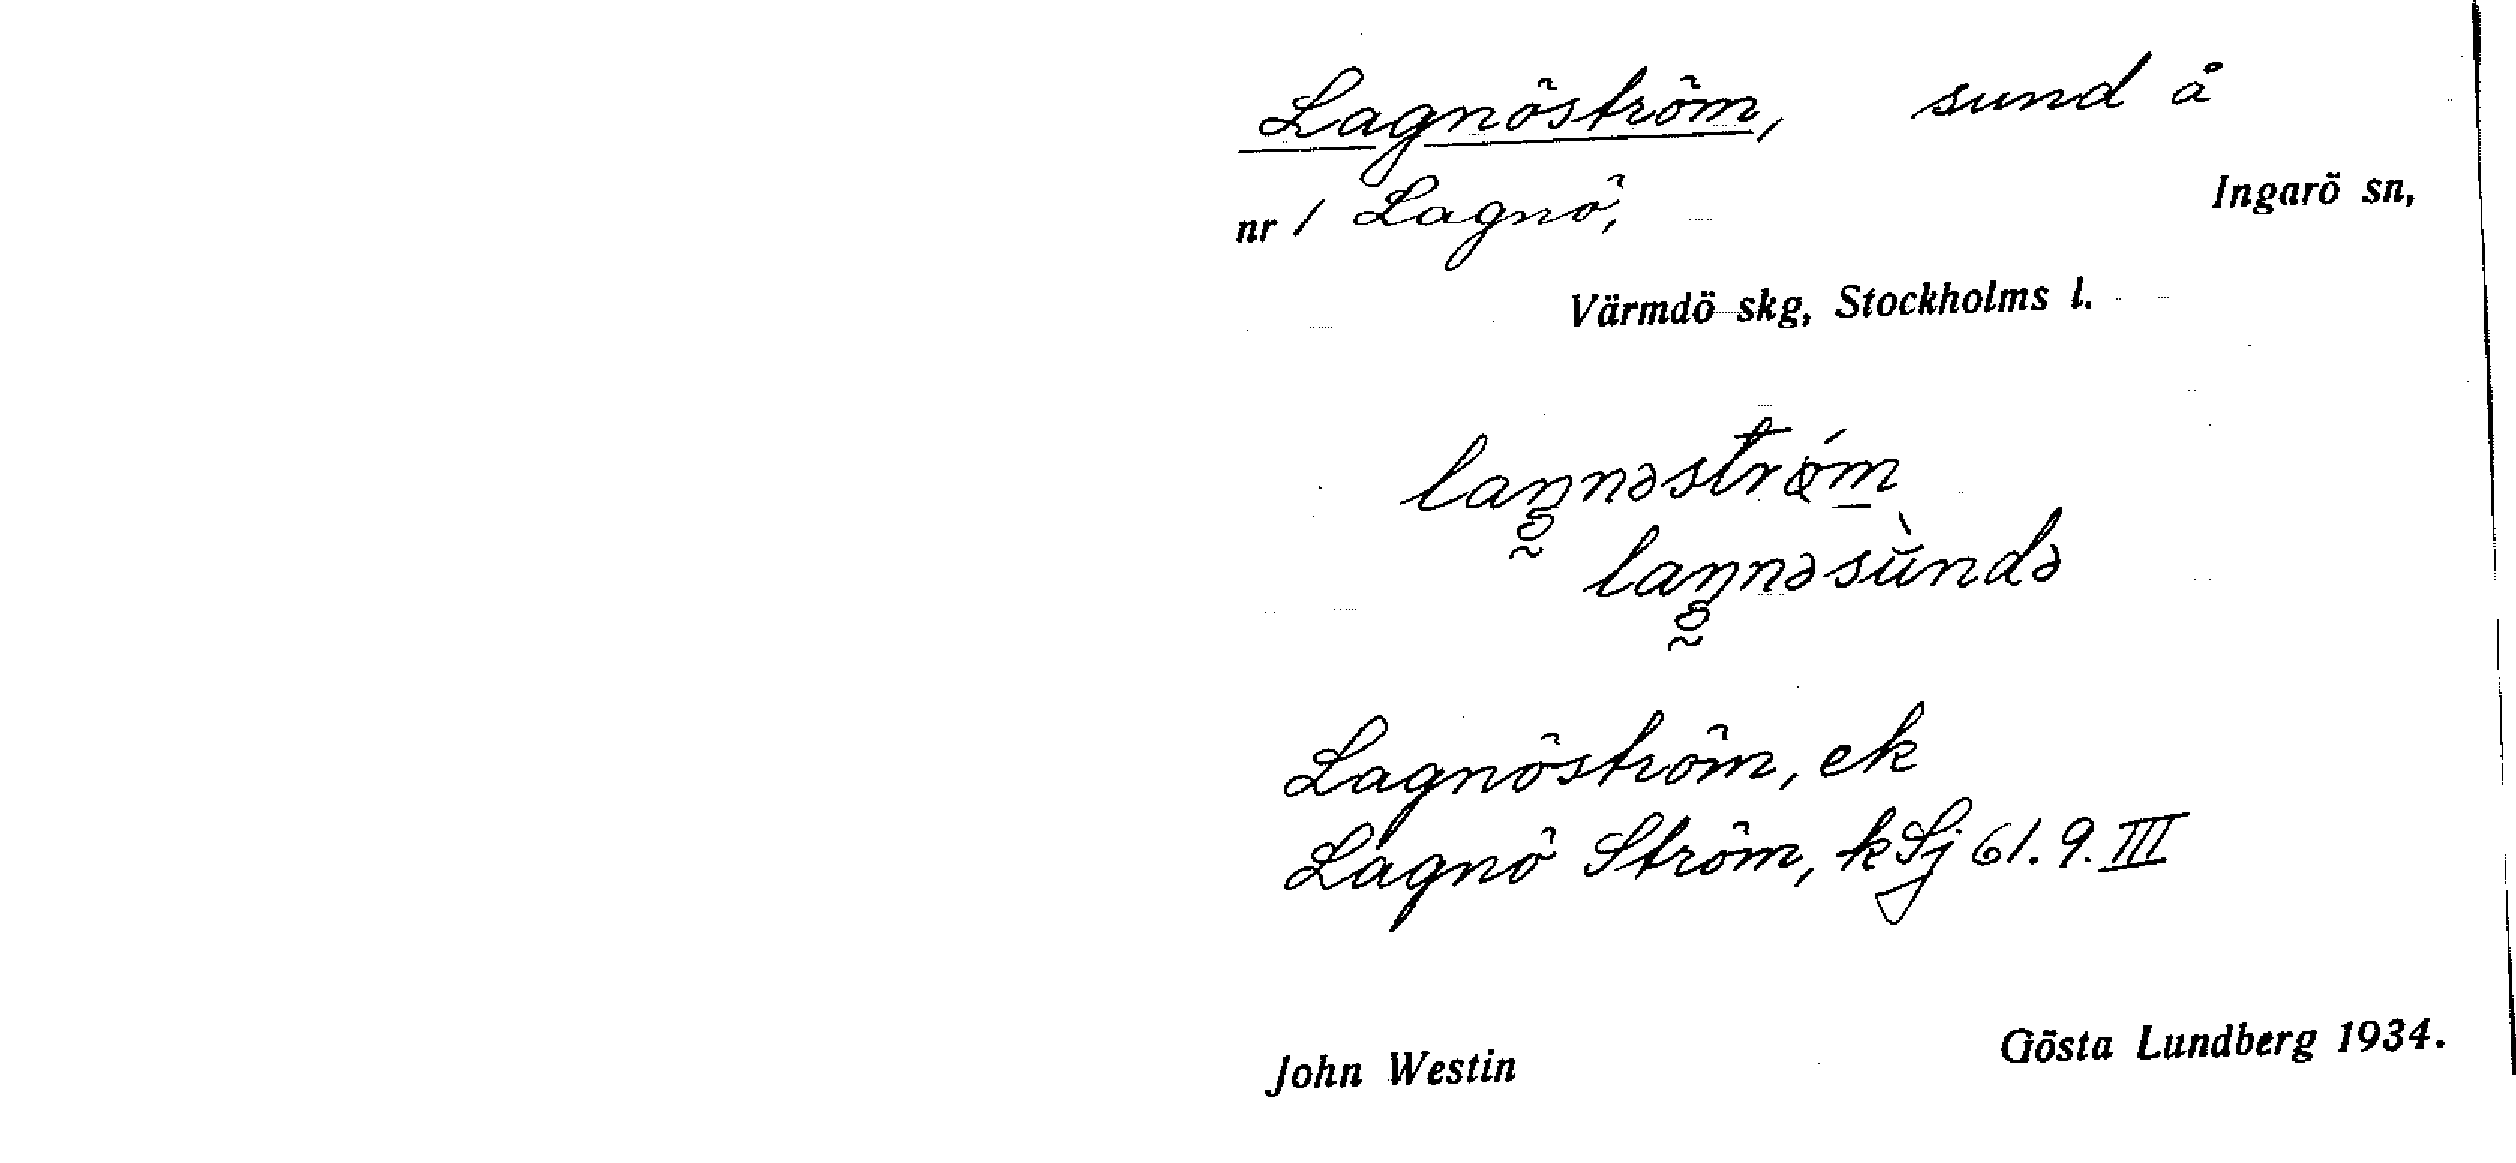 Lagnöström, sund å
nr 1 Lagnö, Ingarö sn,
Värmdö skg, Stockholms l.
laŋnəstrǿm
laŋnəsùndə
Lagnöström, ek
Lagnö Ström, kSj 61.9.III
John Westin Gösta Lundberg 1934.